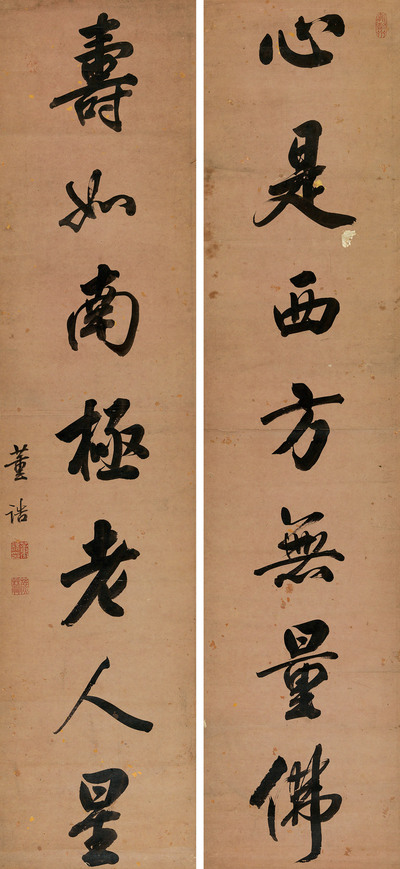 心是西方無量佛
壽如南極老人星
董誥